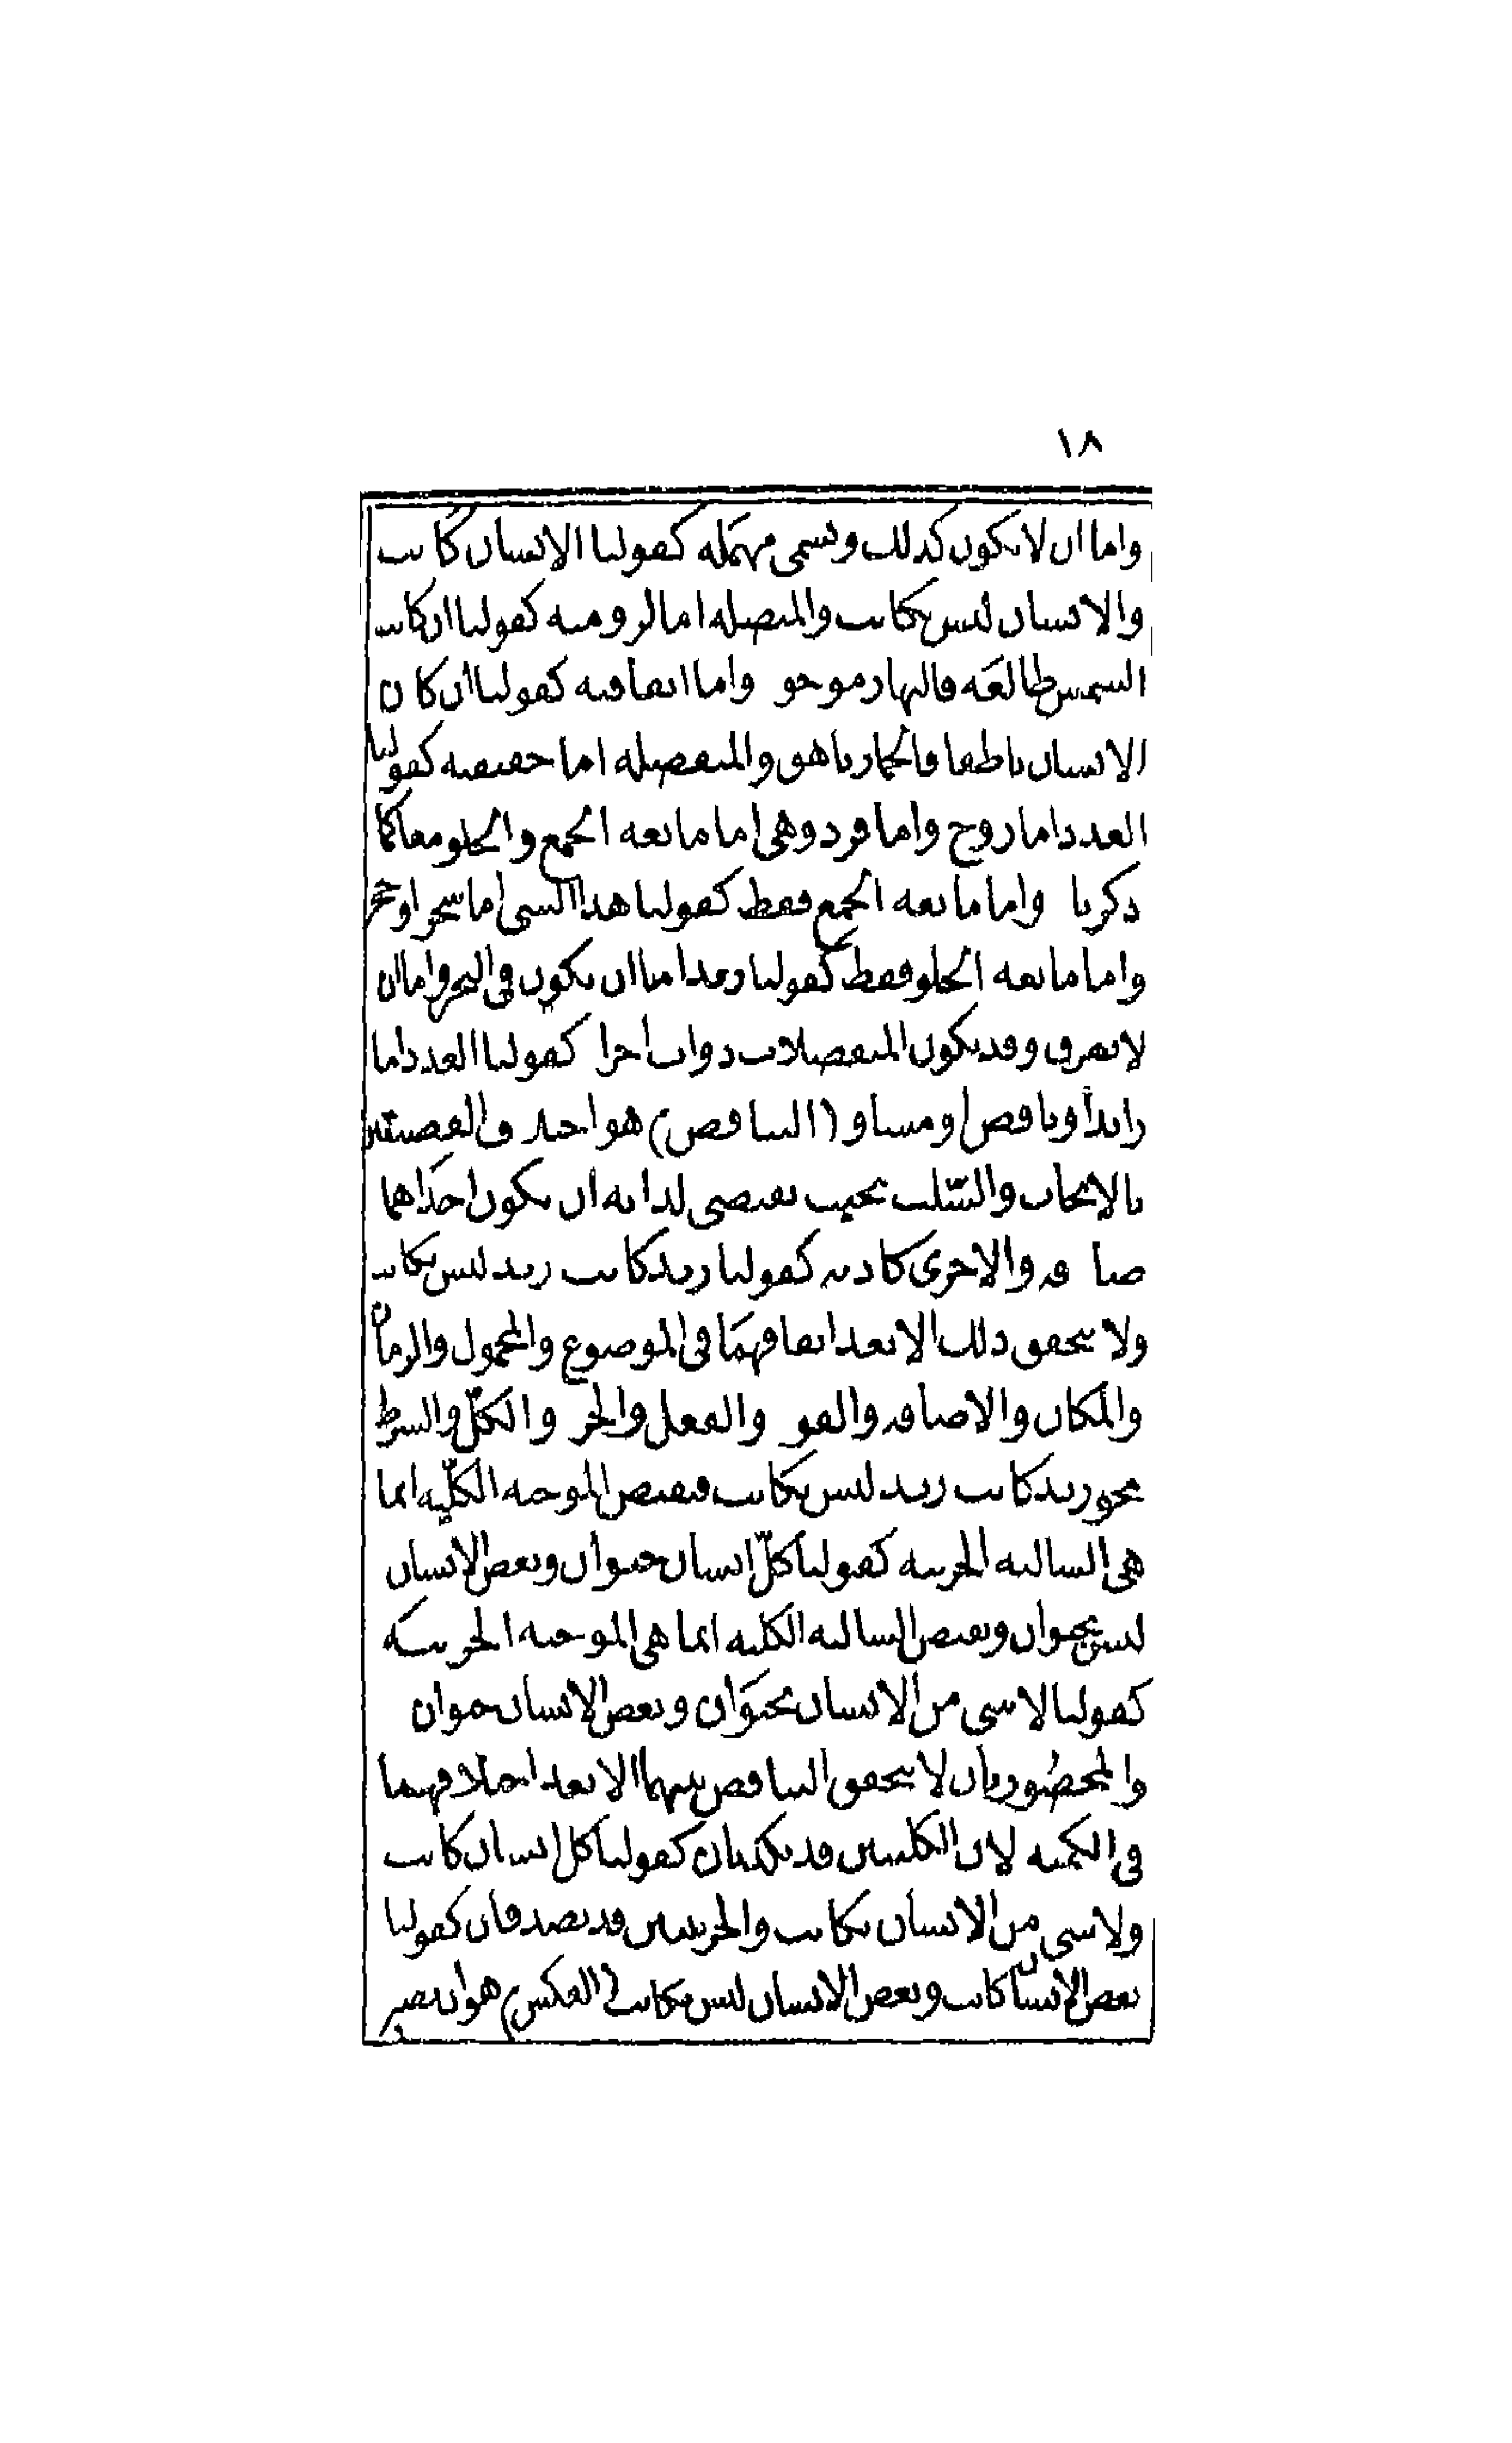 ١٨
واما ان لا يكون كذلك وتسمى مهملة كقولنا الانسان كاتب
والانسان ليس بكاتب والمتصلة اما لزومية كقولنا ان كانت
الشمس طالعة فالنهار موجود واما اتفاقية كقولنا ان كان
الانسان ناطقا فالحمار ناهق والمنفصلة اما حقيقية كقولنا
العدد اما زوج واما فرد وهى اما مانعة الجمع والخلو معا كما
ذكرنا واما مانعة الجمع فقط كقولنا هذا الشئ اما شجر او حجر
واما مانعة الخلو فقط كقولنا زيد اما ان يكون فى البحر واما ان
لا يغرق وقد يكون المنفصلات ذوات اجزاء كقولنا العدد اما
زائد او ناقص او مساو (التناقض) هو اختلاف القضيتين
بالايجاب والسّلب بحيث يقتضى لذاته ان يكون احداهما
صادقة والاخرى كاذبة كقولنا زيد كاتب زيد ليس بكاتب
ولا يتحقق ذلك الا بعد اتفاقهما فى الموضوع والمحمول والزمان
والمكان والاضافة والقوة والفعل والجزء والكلّ والشرط
نحو زيد كاتب زيد ليس بكاتب فنقيض الموجبة الكلّية انما
هى السالبة الجزئية كقولنا كلّ انسان حيوان وبعض الانسان
ليس بحيوان ونقيض السالبة الكلية انما هى الموجبة الجزئية
كقولنا لا شئ من الانسان بحيوان وبعض الانسان حيوان
والمحصورتان لا يتحقق التناقض بينهما الا بعد اختلافهما
فى الكمية لان الكليتين قد تكذبان كقولنا كل انسان كاتب
ولا شئ من الانسان بكاتب والجزئيتين قد تصدقان كقولنا
بعض الانسان كاتب وبعض الانسان ليس بكاتب (العكس) هو ان يصير